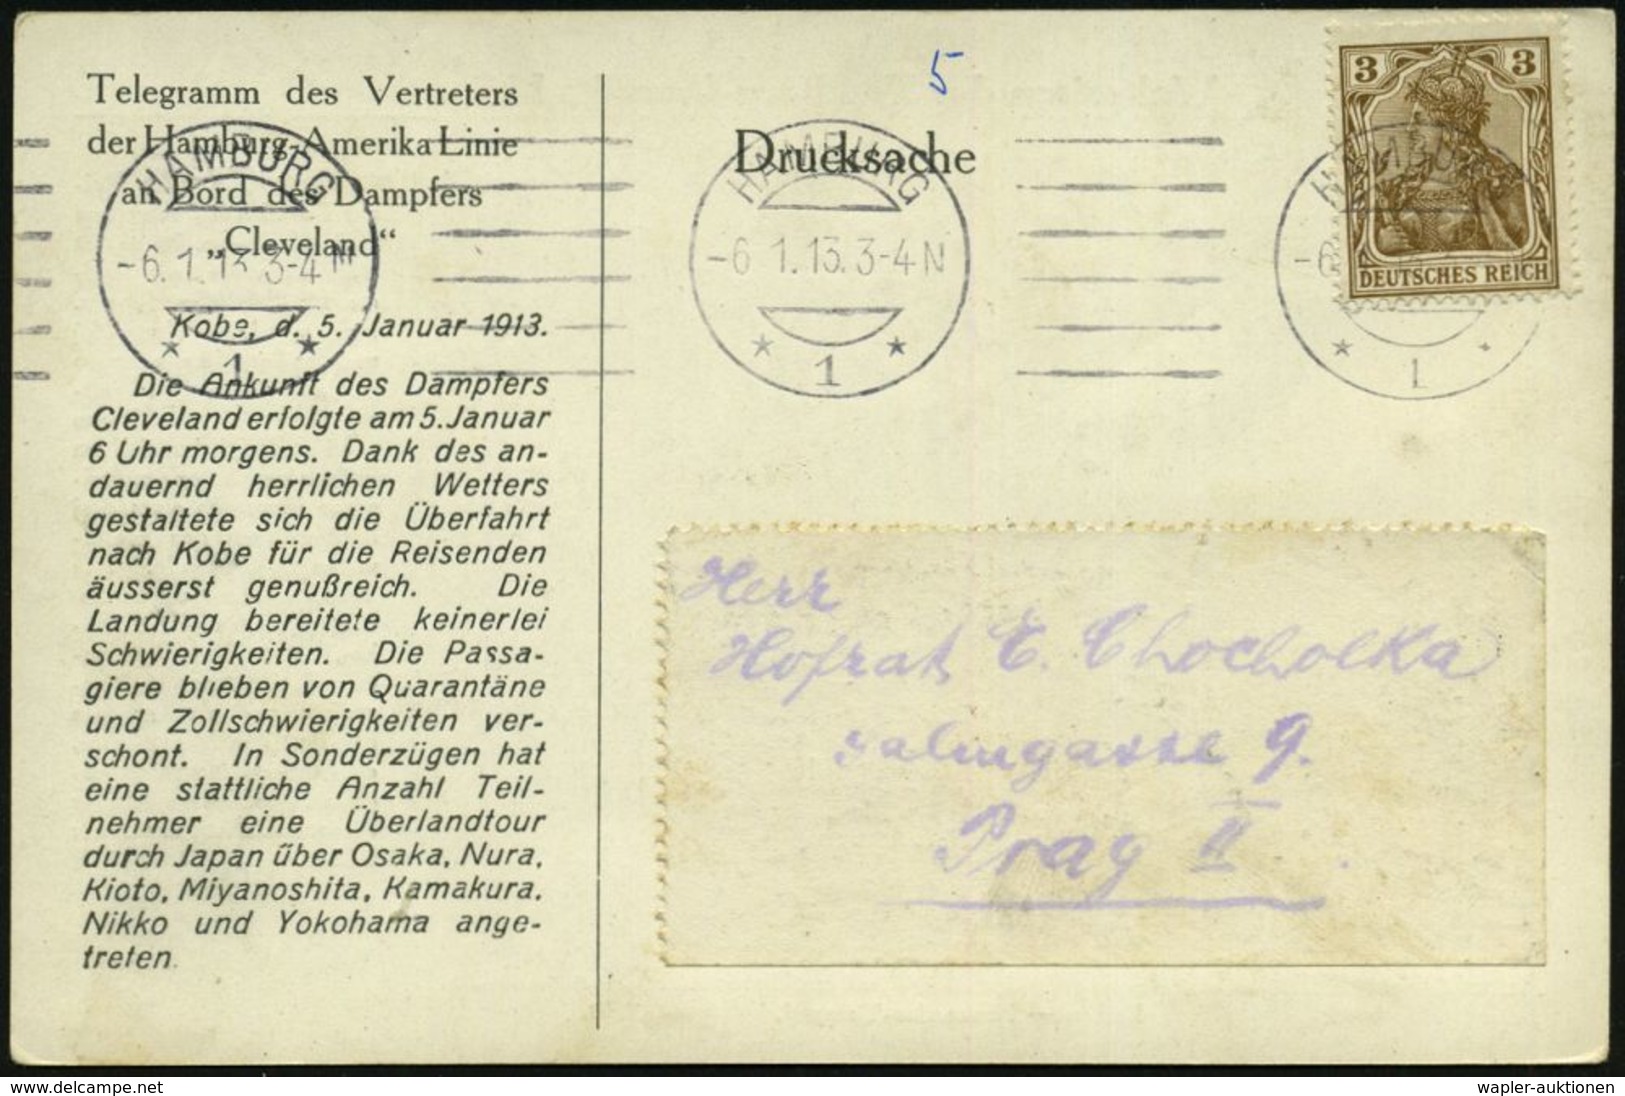 Telegramm des Vertreters
der Hamburg-Amerika Linie
an Bord des Dampfers
„Cleveland“
Kobe, d. 5. Januar 1913.
Die Ankunft des Dampfers
Cleveland erfolgte am 5. Januar
6 Uhr morgens. Dank des an-
dauernd herrlichen Wetters
gestaltete sich die Überfahrt
nach Kobe für die Reisenden
äusserst genußreich. Die
Landung bereitete keinerlei
Schwierigkeiten. Die Passa-
giere blieben von Quarantäne
und Zollschwierigkeiten ver-
schont. In Sonderzügen hat
eine stattliche Anzahl Teil-
nehmer eine Überlandtour
durch Japan über Osaka, Nura,
Kioto, Miyanoshita, Kamakura,
Nikko und Yokohama ange-
treten.
HAMBURG
-6.1.13.3-4N
* 1 *
5
Drucksache
HAMBURG
-6 1.13.3-4N
* 1 *
3 3
DEUTSCHES REICH
-6
* 1
Herr
Hofrat E. Chocholka
9.
Prag II
delcampe.net
wapler-auktionen